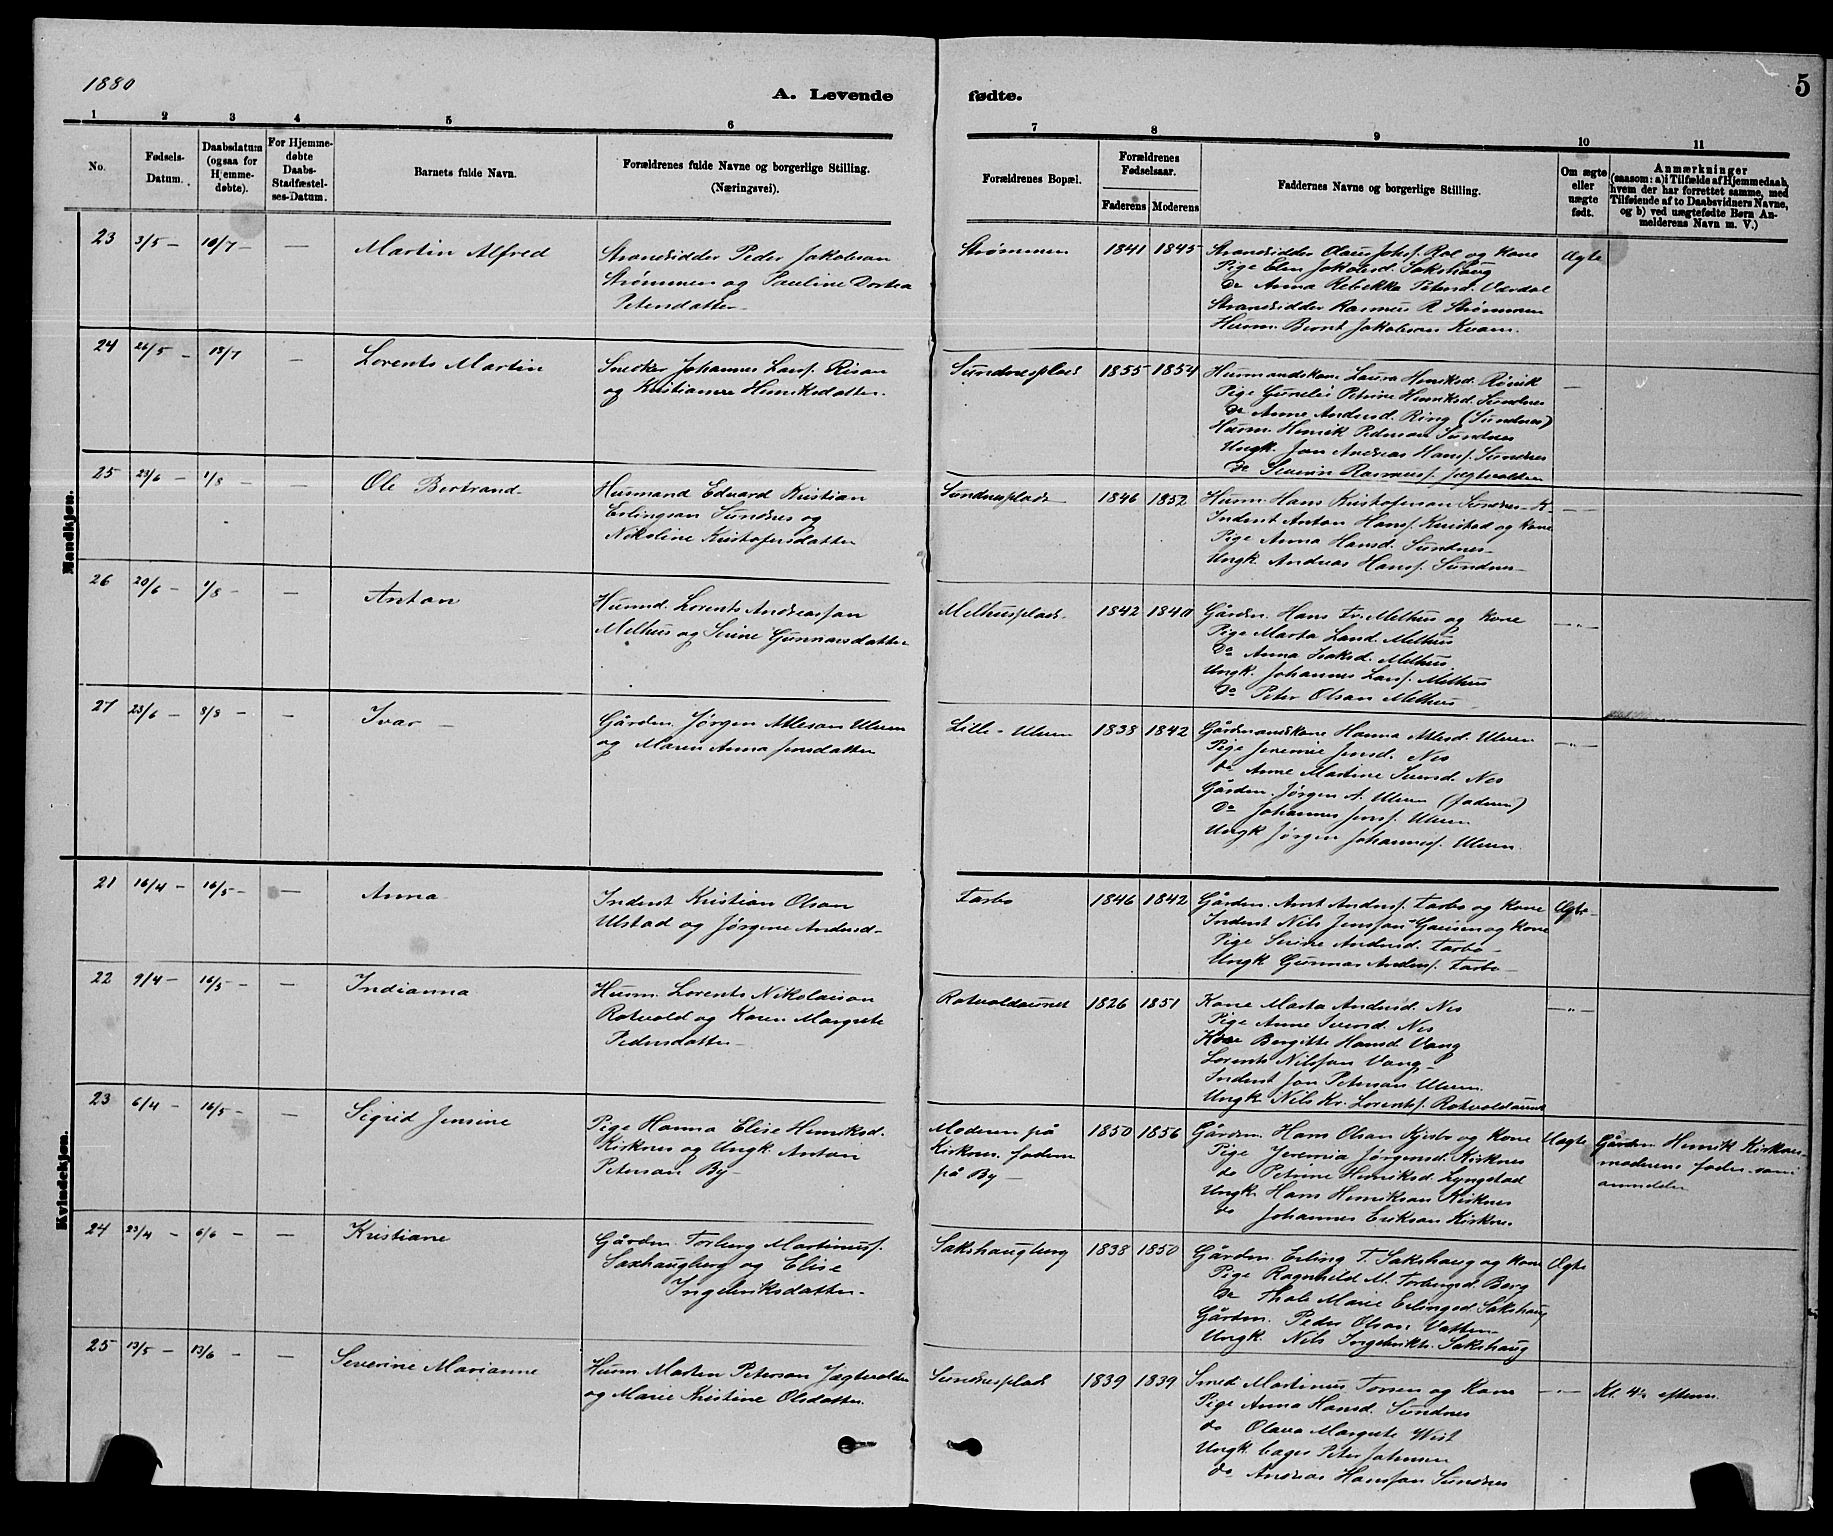 1880
A. Levende fødte.
5
1 2 3 4 5 6 7 8 9 10 11
No.
Fødsels-Datum.
Daabsdatum (ogsaa for Hjemmedøbte).
For Hjemmedøbte Daabs-Stadfæstelses-Datum.
Barnets fulde Navn.
Forældrenes fulde Navne og borgerlige Stilling. (Næringsvei).
Forældrenes Bopæl.
Forældrenes Fødselsaar.
Faderens Moderens
Faddernes Navne og borgerlige Stilling.
Om ægte eller uægte født.
Anmærkninger
(saasom: a) i Tilfælde af Hjemmedaab, hvem der har forrettet samme, med Tilføiende af to Daabsvidners Navne, og b) ved uægtefødte Børn Anmelderens Navn m. V.)
Mandkjøn.
23 3/5 - 10/7 - — Martin Alfred
Strandsidder Peder Jakobsen
Strømmen og Pauline Dortea
Petersdatter
Strømmen 1841 1845
Strandsidder Olaus Johs. Rol og Kone
Pige Elen Jakobsd. Sakshaug
Do Anna Rebekka Petersd. Vardal
Strandsidder Rasmus R Strømmen
Husm. Bernt Jakobsen Kvam.
Ægte
24 26/5 - 18/7 — Lorents Martin
Snedker Johannes Larsf. Risan
og Kristianna Henriksdatter
Sundnesplads 1855 1854
Husmandskone Laura Henriksd. Røvik
Pige Gurelie Petrine Henriksd. Sundnes
do Anne Andersd. Ring (Sundnes)
Husm. Henrik Pedersen Sundnes
Ungk. Jon Andreas Hansf. Sundnes
do Severin Rasmusf. Jegtvolden
—
25 23/6 - 1/8 - — Ole Bertrand
Husmand Edvard Kristian
Erlingsen Sundnes og
Nikoline Kristofersdatter
Sundnesplads 1846 1852
Husm. Hans Kristofersen Sundnes K
Inderst Anton Hansf. Knstad og Kone
Pige Anna Hansd. Sundnes
Ungk. Andreas Hansf. Sundnes
—
26 20/6 - 1/8 - — Anton
Husmd. Lorents Andreasfon
Melhus og Serine Gunnarsdatter
Melhusplads 1842 1840
Gårdm. Hans Tr. Melhus og Kone
Pige Marta Larsd. Melhus
Do Anna Isaksd. Melhus
Ungk. Johannes Larsf. Melhus
Do Peter Olsen Melhus
—"—
27 23/6 - 8/8 - — Ivar
Gårdm. Jørgen Atleson Ulven
og Maren Anna Jonsdatter
Lille-Ulven 1838 1842
Gårdmandskone Hanna Atlesd. Ulven
Pige Jeremie Jensd. Nes
do Anne Martine Svensd. Nes
Gårdm. Jørgen A. Ulven (faderen)
Do Johannes Jensf. Ulven
Ungk. Jørgen Johannesf. Ulven
—"—
Kvindekjøn.
21 16/4 - 16/5 - — Anna
Inderst Kristian Olsen
Ulstad og Jørgine Andersd.
Tarbo 1846 1842
Gårdm. Arnt Andersf. Tarbo og Kone
Inderst Nils Jensfon og Kone
Pige Serine Andersd. Tarbo
Ungk Gunnar Andersf. Tarbo
Ægte
22 9/4 - 16/5 - — Indianna
Husm. Lorents Nikolaison
Rotvold og Karen Margrete
Pedersdatter
Rotvoldaunet 1826 1851
Kone Marta Andersd. Nes
Pige Anne Svensd. Nes
Kone Bergitte Hansd Vang
Lorents Nilsfon Vang
Inderst Jon Peterson Ulven.
Ungk Nils Kr. Lorentsf. Rotvoldaunet
—"—
23 6/4 - 16/5 - — Sigrid Jensine
Pige Hanna Elise Henriksd.
Kirknes og Ungk. Anton
Petersen By
Moderen på
Kirknes. faderen
på By
1850 1856
Gårdm. Hans Olsen Kjesbo og Kone
Pige Jeremia Jørgensd. Kirknes
do Petrine Henriksd. Lyngstad
Ungk. Hans Henriksen Kirknes
do Johannes Eriksen Kirknes
Uægte
Gårdm Henrik Kirknes
moderens fader som
anmelder
24 23/4 - 6/6 - — Kristiane
Gårdm. Torberg Martinusf.
Saxhaugberg og Elise
Ingebriksdatter
Sakshaugberg 1838 1850
Gårdm. Erling T. Sakshaug og Kone
Pige Ragnhild M. Torbergsd. Berg
Do Thale Marie Erlingsd. Sakshaug
Gårdm. Peder Olsen Vatten
Ungk. Nils Ingebriktf. Sakshaug
Ægte
25 13/5 - 13/6 - — Severine Marianne
Husm Morten Peterson Jægtvolden
og Marie Kristine Olsdatter
Sundnesplads 1839 1839
Smed Martinus Torsen og Kone
Pige Anna Hansd. Sundnes
do Olava Margrete Wist
Ungk. bager Peter Johnsen
do Andreas Hansfon Sundnes
—"—
Kl. 4 efterm.